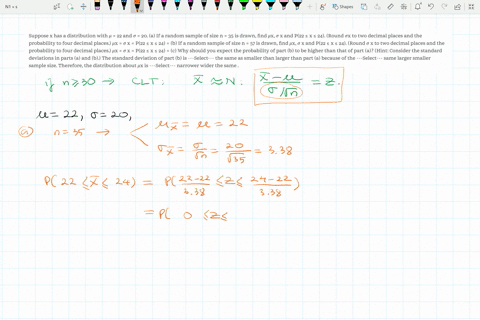 Suppose x has a distribution with μ = 22 and σ = 20. (a) If a random sample of size n = 35 is drawn, find μx, σ x and P(22 ≤ x ≤ 24). (Round σx to two decimal places and the
probability to four decimal places.) μx = σ x = P(22 ≤ x ≤ 24) = (b) If a random sample of size n = 57 is drawn, find μx, σ x and P(22 ≤ x ≤ 24). (Round σ x to two decimal places and the
probability to four decimal places.) μx = σ x = P(22 ≤ x ≤ 24) = (c) Why should you expect the probability of part (b) to be higher than that of part (a)? (Hint: Consider the standard
deviations in parts (a) and (b).) The standard deviation of part (b) is ---Select--- the same as smaller than larger than part (a) because of the ---Select--- same larger smaller
sample size. Therefore, the distribution about μx is ---Select--- narrower wider the same .
if n ≥ 30 → CLT: x̄ ≈ N: (x̄ - μ) / (σ/√n) = z.
μ = 22, σ = 20,
(a) n = 35 → μx̄ = μ = 22
σx̄ = σ/√n = 20/√35 = 3.38
P( 22 ≤ x̄ ≤ 24) = P( (22-22)/3.38 ≤ z ≤ (24-22)/3.38 )
= P( 0 ≤ z ≤